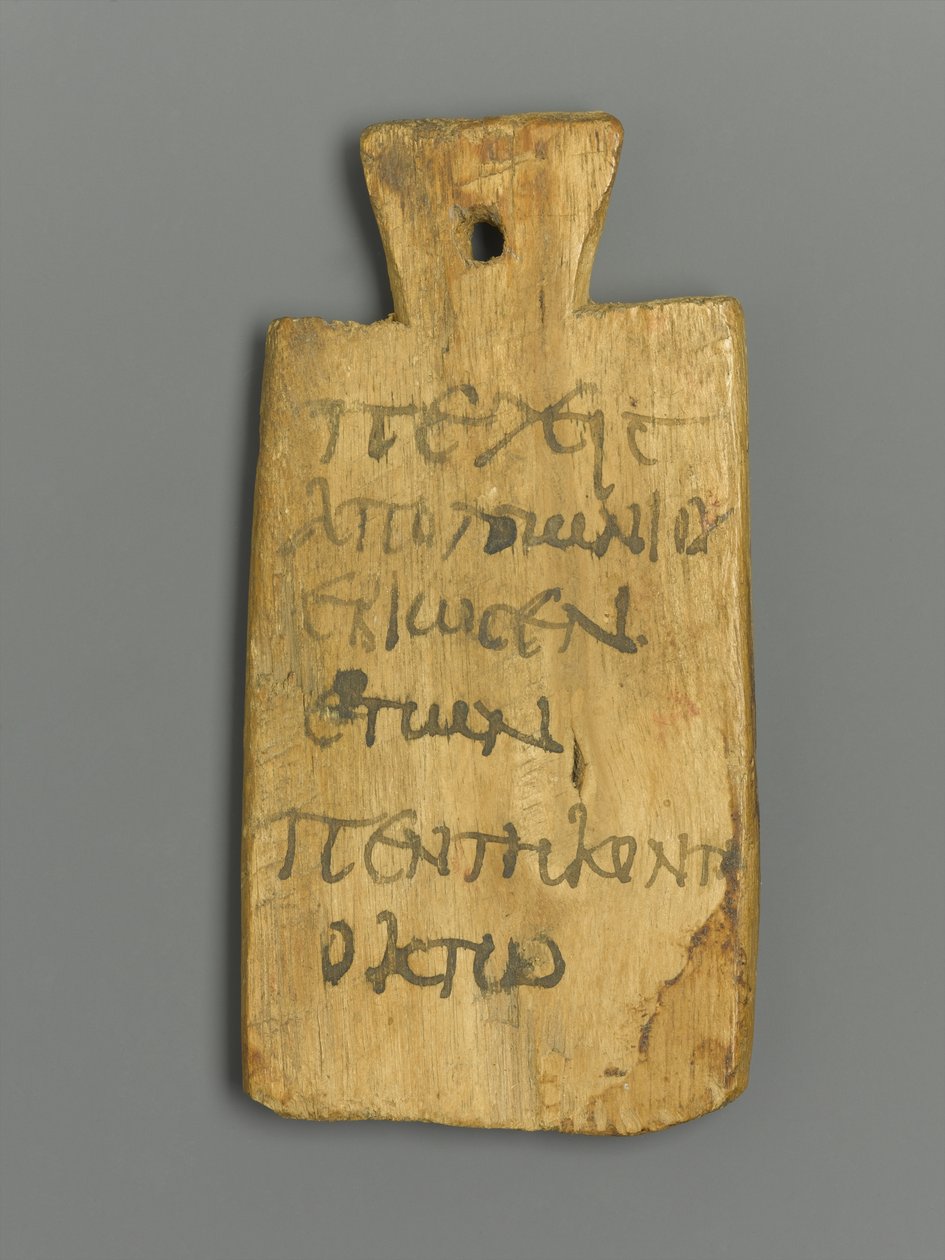 πεχειϲ
απολλωνιου
εβιωϲεν
ετων
πεντηκοντα
οκτω